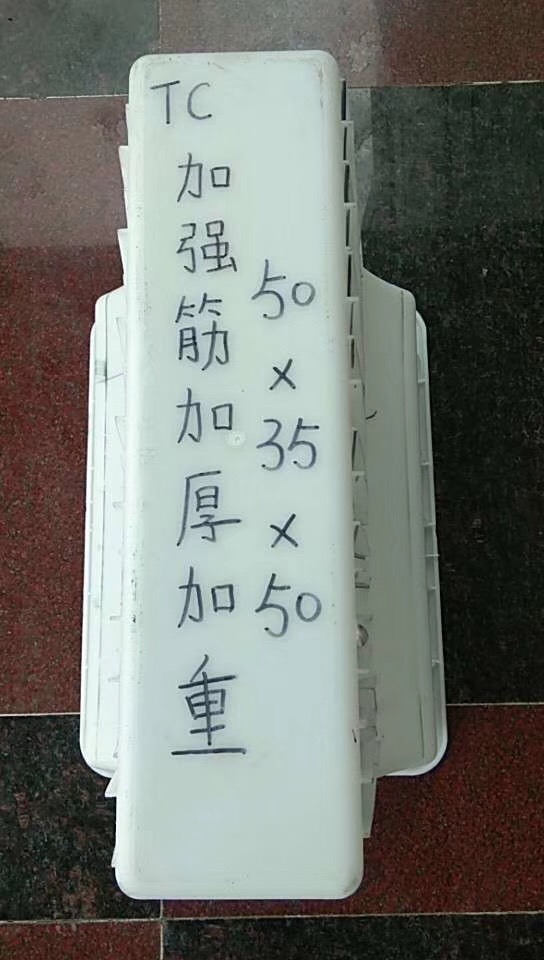 TC
加强筋加厚加重
50×35×50